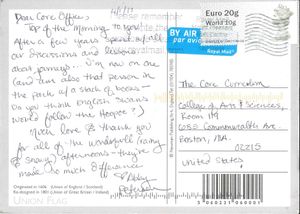 Dear Core Office,
4/1/11
Top of the morning to you!
After a few years spent of all
our discussions and lessons,
does journeys. I'm now on one
(and has also that person in
the pack w/ a stack of books -
Do you think English swans
world follow the Hooper?)
Much love & thank you
for all of the wonderful (rainy
& snowy) afternoons - they've
made so much difference
Please remember
Euro 20g
World 10g
BY AIR
par avion
Royal Mail
The Core Curriculum
College of Arts & Sciences,
Room 119
685 Commonwealth Ave.
Boston, MA.
02215
United States
Originated in 1606 (Union of England / Scotland)
Re-designed in 1801 (Union of Great Britain / Ireland)
UNION FLAG
5 060231 060001